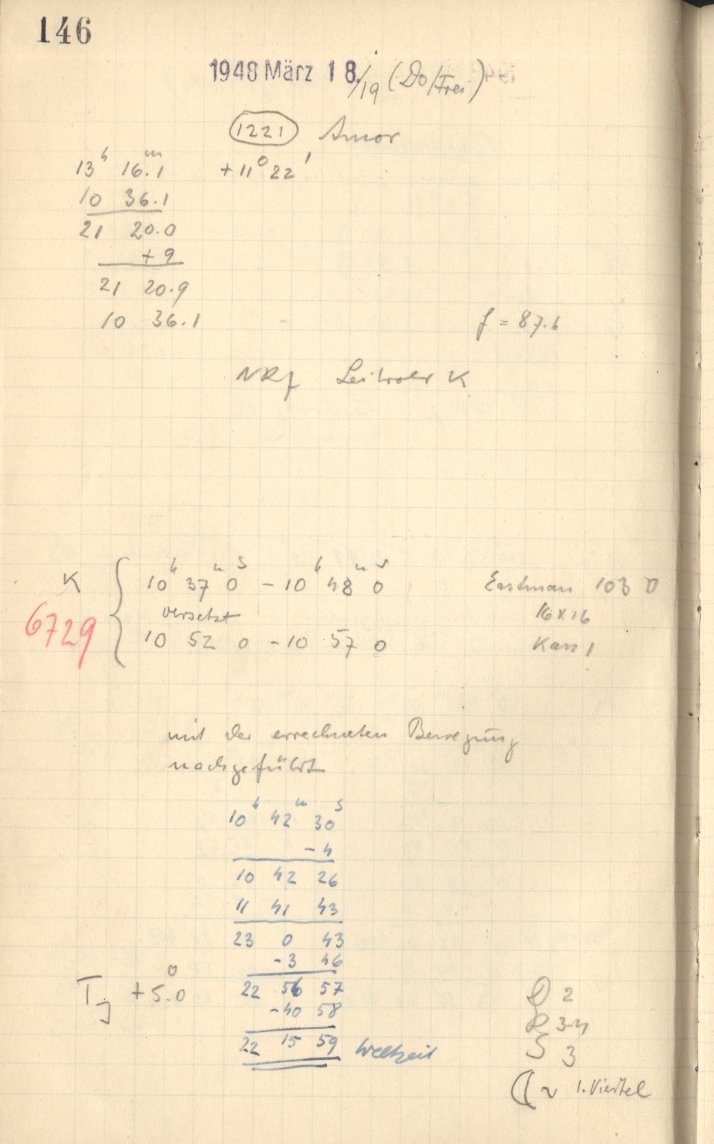 146
1948 März 18./19 (Do/Frei)
1221 Amor
13h 16.m1 +11° 22'
10 36.1
21 20.0
+9
21 20.9
10 36.1
f = 87.6
NRf Leitrohr K
K 10h 37m 0s - 10h 48m 0s Eastman 103 O
versetzt 16x16
6729 10 52 0 - 10 57 0 Kass 1
mit der errechneten Bewegung
nachgeführt
10h 42m 30s
-4
10 42 26
11 41 43
23 0 43
-3 46
T +5.°0 22 56 57
-40 58
22 15 59 Weltzeit
2
R 3-4
S 3
~ 1. Viertel